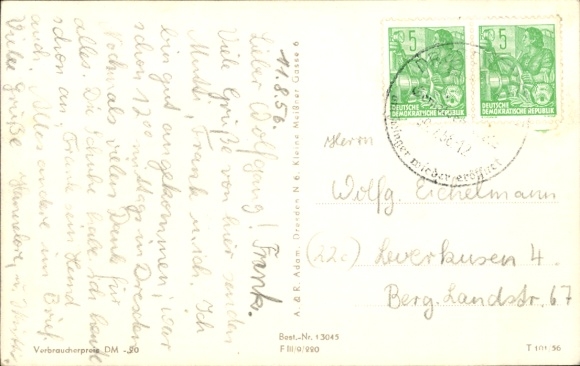 11.8.56.
Lieber Wolfgang! Frankf.
Viele Grüße von hier senden
Mutti, Frank u. ich. Ich
bin gut angekommen, war
schon 12⁰⁰ mittag in Dresden
Nochmals vielen Dank für
alles. Die Schuhe habe ich heute
schon an, Frank sein Hemd
auch. Alles andere im Brief.
Viele Grüße
Hannelore, u. Mutti
Verbraucherpreis DM -.20
A. & R. Adam, Dresden N 6, Kleine Meißner Gasse 6
Best.-Nr. 13045
F III/9/220
5
DEUTSCHE
DEMOKRATISCHE REPUBLIK
5
DEUTSCHE
DEMOKRATISCHE REPUBLIK
Zwinger wiedereröffnet
Herrn
Wolfg. Eichelmann
(22c) Leverkusen 4.
Berg. Landstr. 67
T 101/56